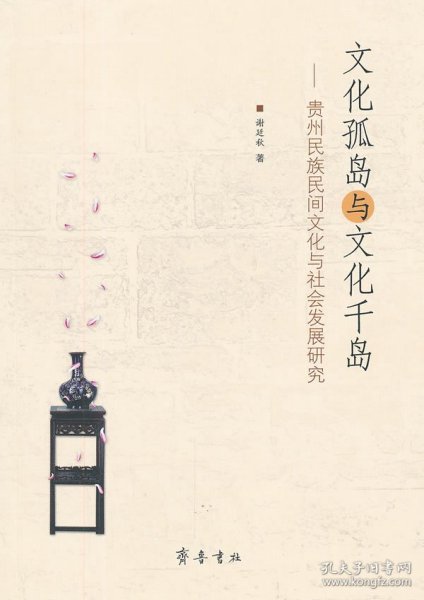 文化孤岛与文化千岛
——贵州民族民间文化与社会发展研究
谢廷秋 著
齊鲁書社
孔夫子旧书网
www.kongfz.com